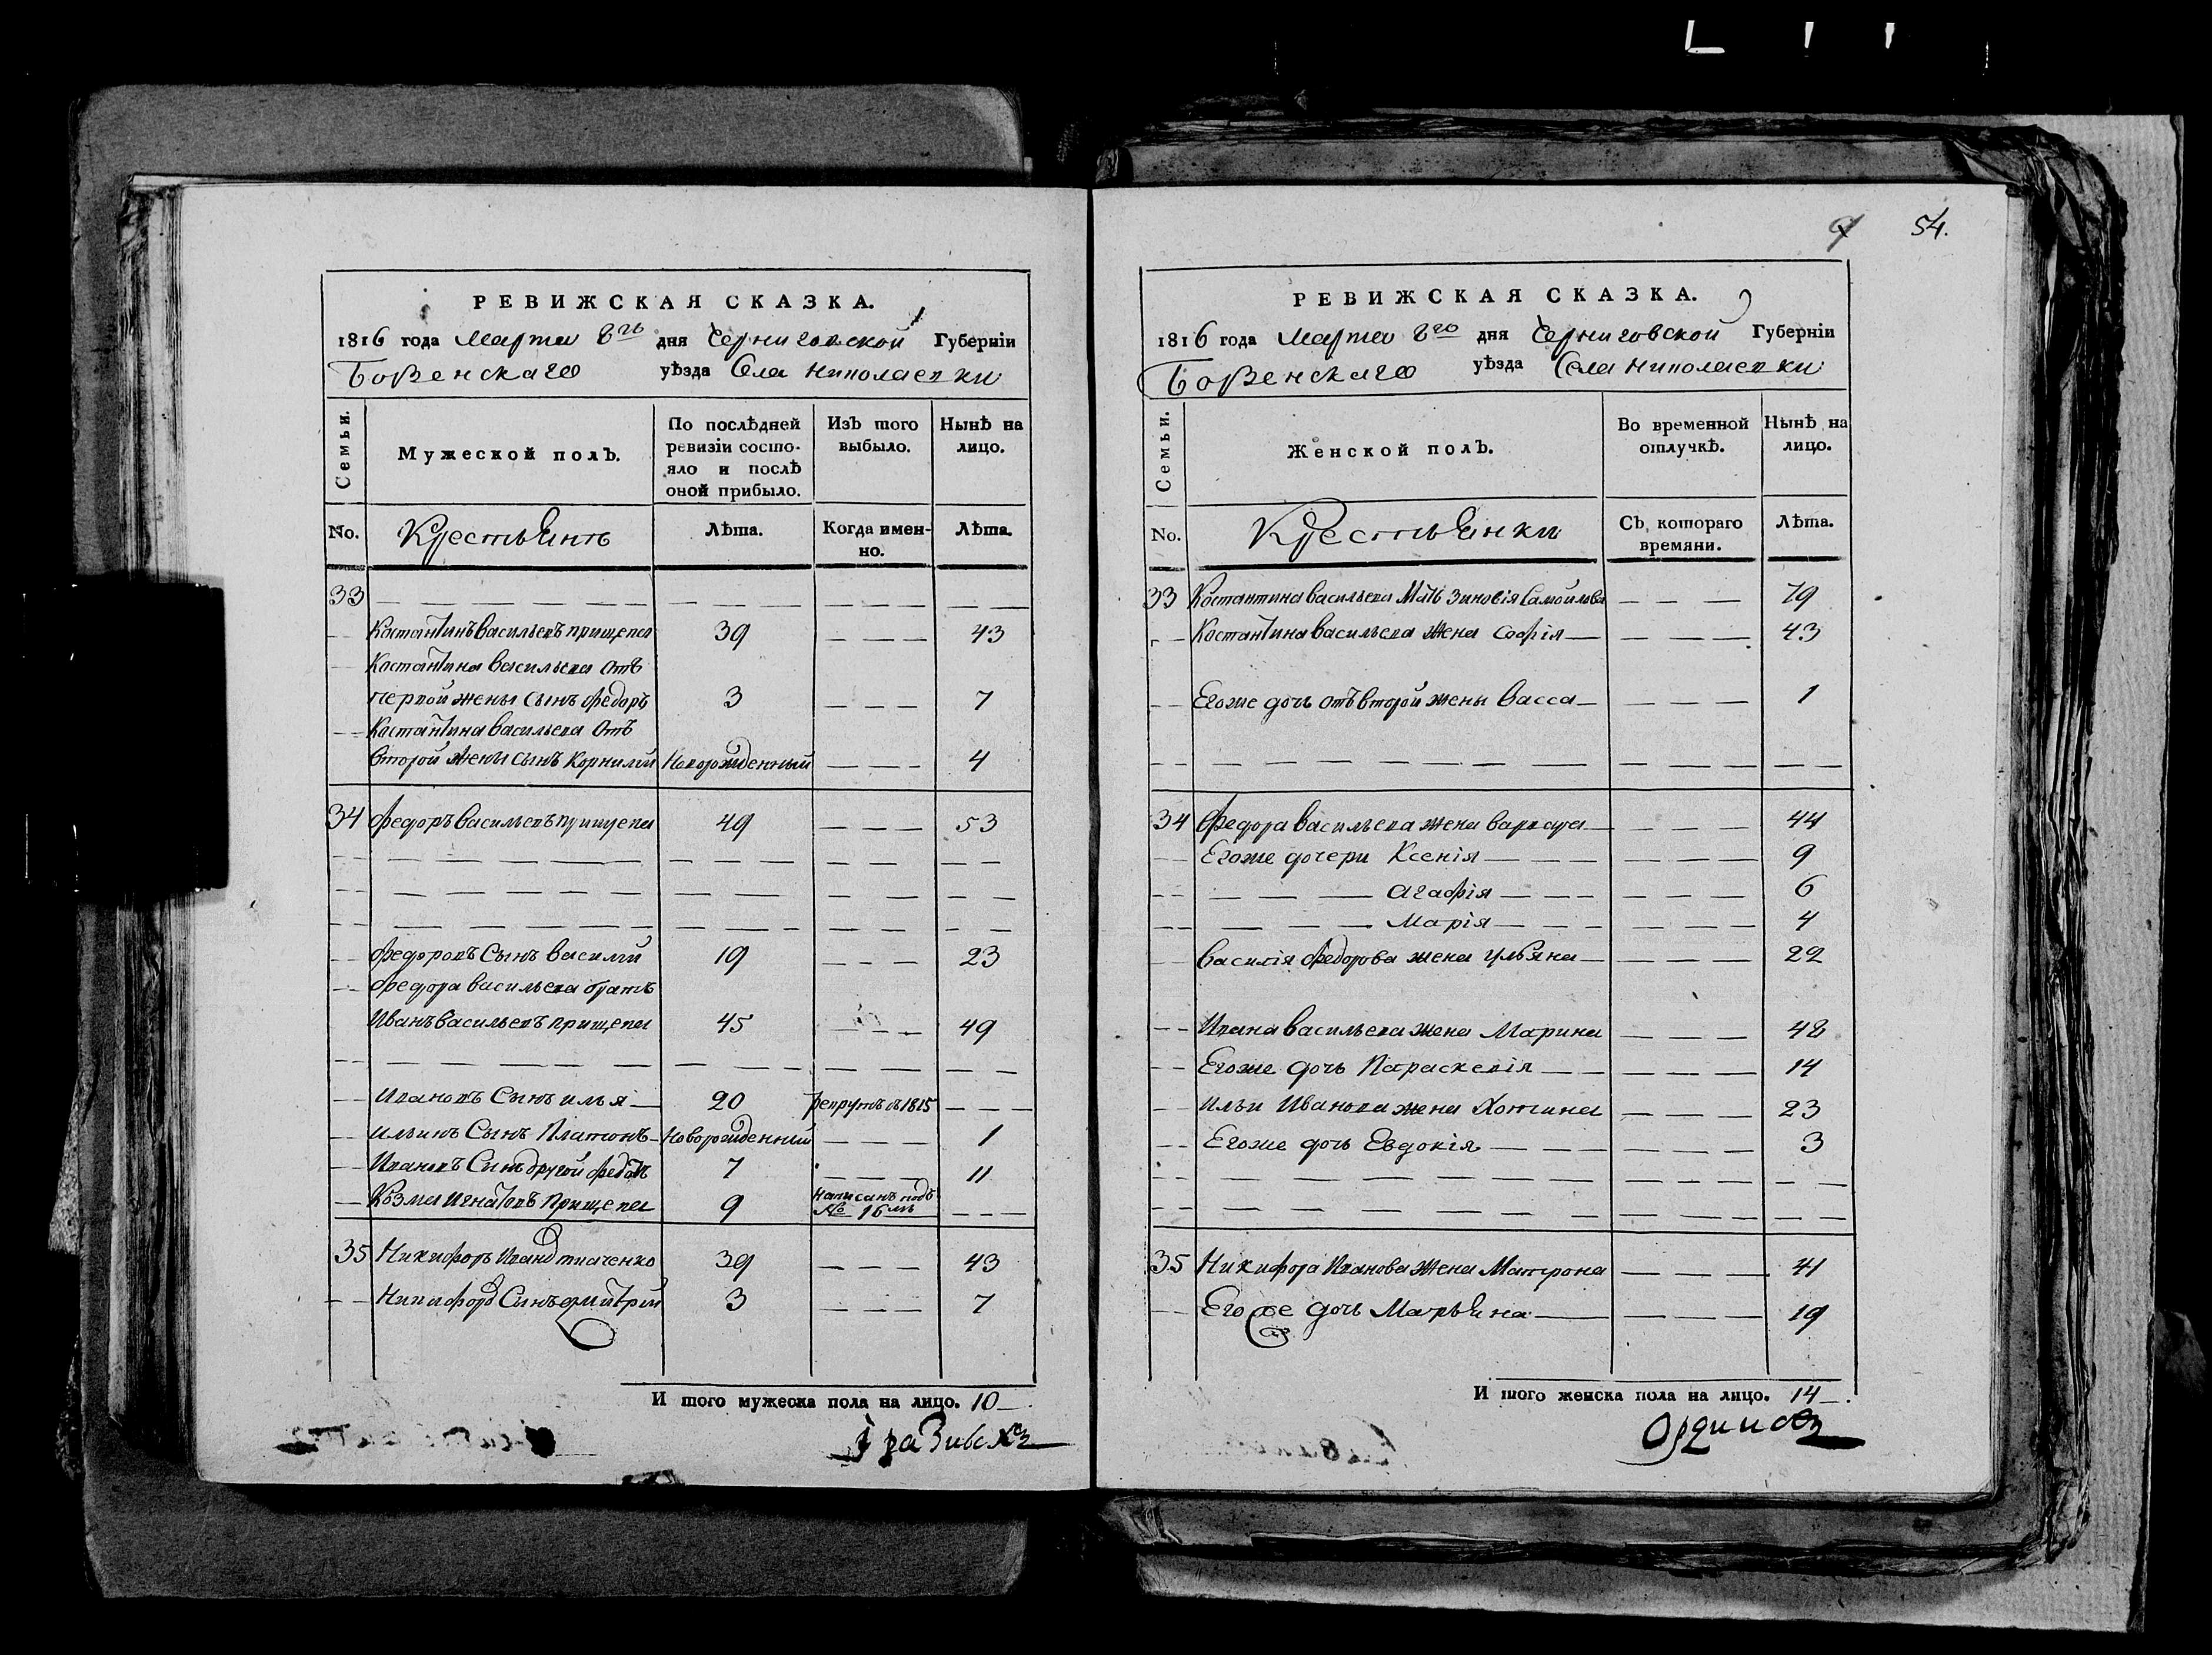 РЕВИЖСКАЯ СКАЗКА.
1816 года Марта 8го дня Черниговской Губерніи
Борзенскаго уѣзда Села Николаевки
Семьи.
Мужеской полъ.
По послѣдней ревизіи состо-
яло и послѣ
оной прибыло.
Изъ того выбыло.
Нынѣ на лицо.
No. Крестьянъ Лѣта. Когда имен-
но. Лѣта.
33
Костантинъ Васильевъ прищепа 39 43
Костантина Васильева отъ
первой жены сынъ Федоръ 3 7
Костантина Васильева отъ
второй жены сынъ Корнилий Новорожденный 4
34 Федоръ Васильевъ прищепа 49 53
Федоровъ Сынъ Василий 19 23
Федора Васильева братъ
Иванъ Васильевъ прищепа 45 49
Ивановъ Сынъ илья 20 рекрутъ въ 1815
ильинъ Сынъ Платонъ Новорожденный 1
Ивановъ Сынъ другой Федотъ 7 11
Козма игнатовъ Прищепа 9 Написанъ подъ
№ 16мъ
35 Никифоръ Иванов ткаченко 39 43
Никифоров Сынъ дмитрій 3 7
И того мужеска пола на лицо. 10
54.
РЕВИЖСКАЯ СКАЗКА.
1816 года Марта 8го дня Черниговской Губерніи
Борзенскаго уѣзда Села Николаевки
Семьи.
Женской полъ.
Во временной отлучкѣ.
Нынѣ на лицо.
No. Крестьянки Съ котораго
времяни. Лѣта.
33 Костантина Васильева Мать Зиновія Самойлова 79
Костантина Васильева жена Софія 43
Егоже дочь отъ второй жены Васса 1
34 Федора Васильева жена Варвара 44
Егоже дочери Ксенія 9
Агафія 6
Марія 4
Василія Федорова жена Ульяна 22
Ивана Васильева жена Марина 48
Егоже дочь Параскевія 14
Ильи Иванова жена Хотина 23
Егоже дочь Евдокія 3
35 Никифора Иванова жена Матрона 41
Егоже дочь Марьяна 19
И того женска пола на лицо. 14